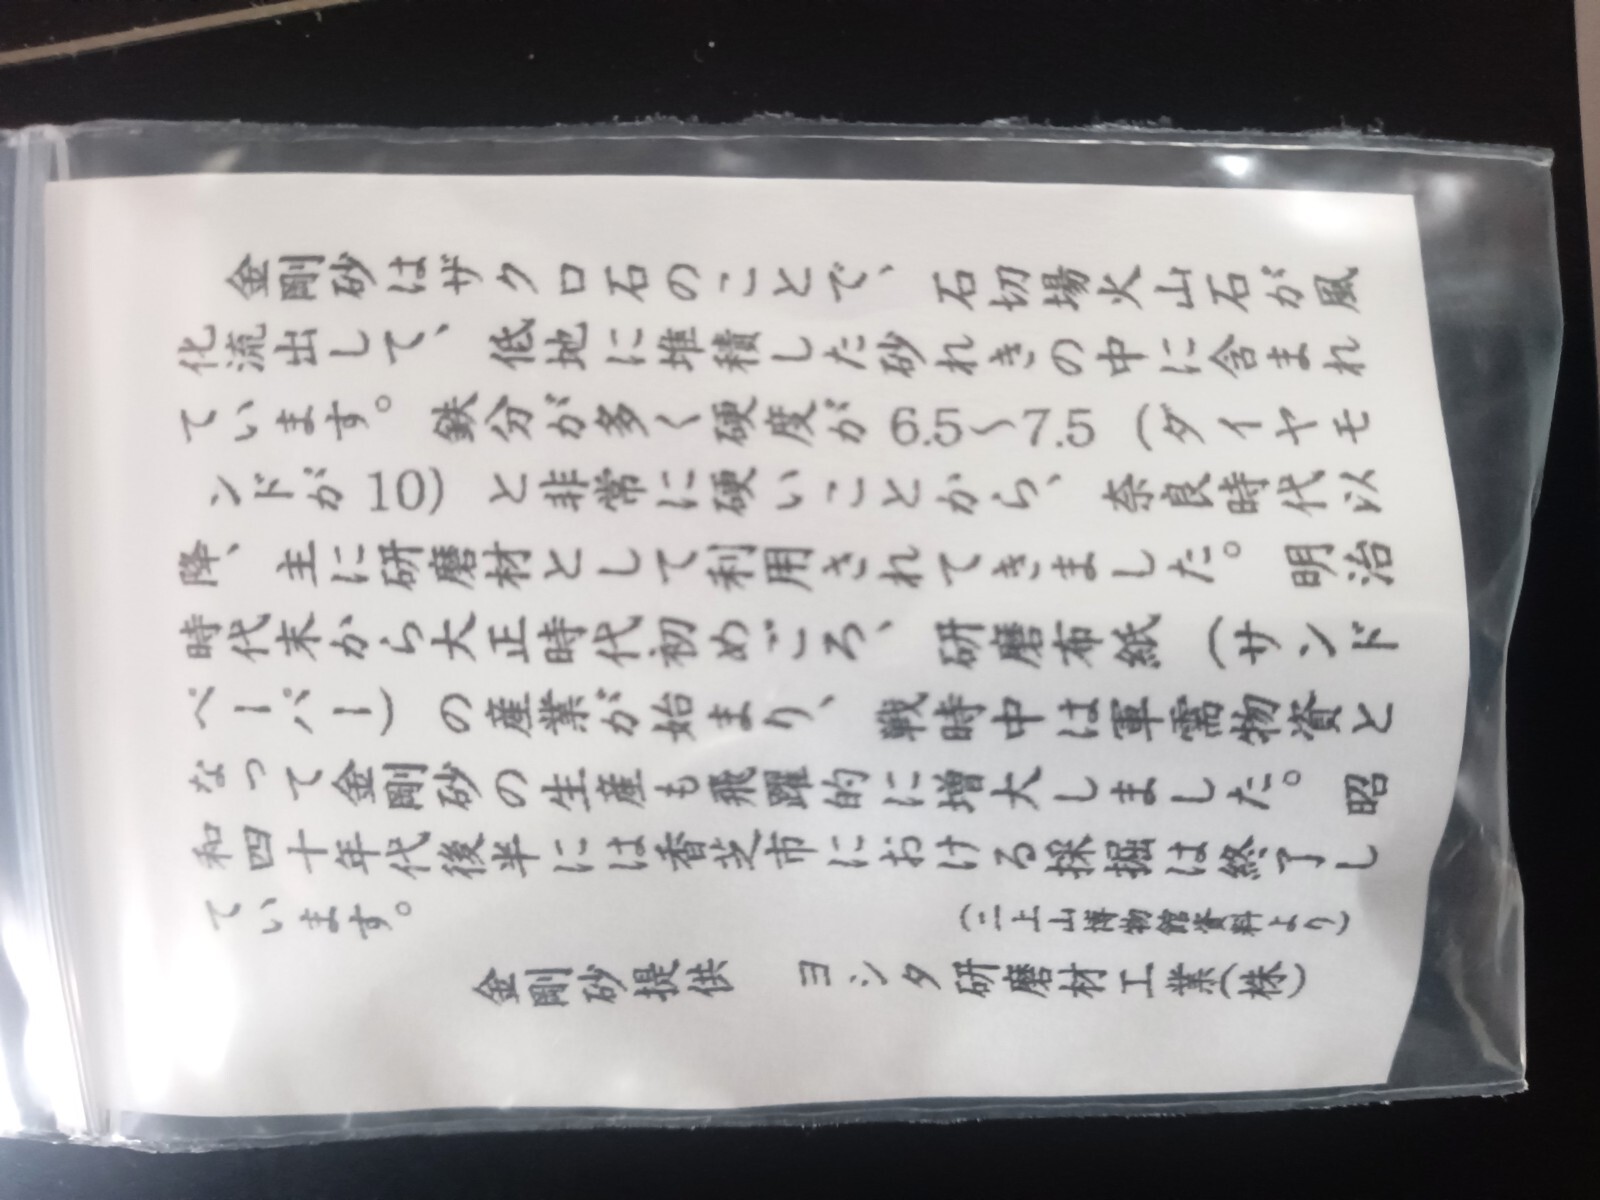 金剛砂はザクロ石のことで、石切場火山石が風
化流出して、低地に堆積した砂れきの中に含まれ
ています。鉄分が多く硬度が6.5～7.5（ダイヤモ
ンドが10）と非常に硬いことから、奈良時代以
降、主に研磨材として利用されてきました。明治
時代末から大正時代初めごろ、研磨布紙（サンド
ペーパー）の産業が始まり、戦時中は軍需物資と
なって金剛砂の生産も飛躍的に増大しました。昭
和四十年代後半には香芝市における採掘は終了し
ています。
（二上山博物館資料より）
金剛砂提供　ヨシタ研磨材工業（株）